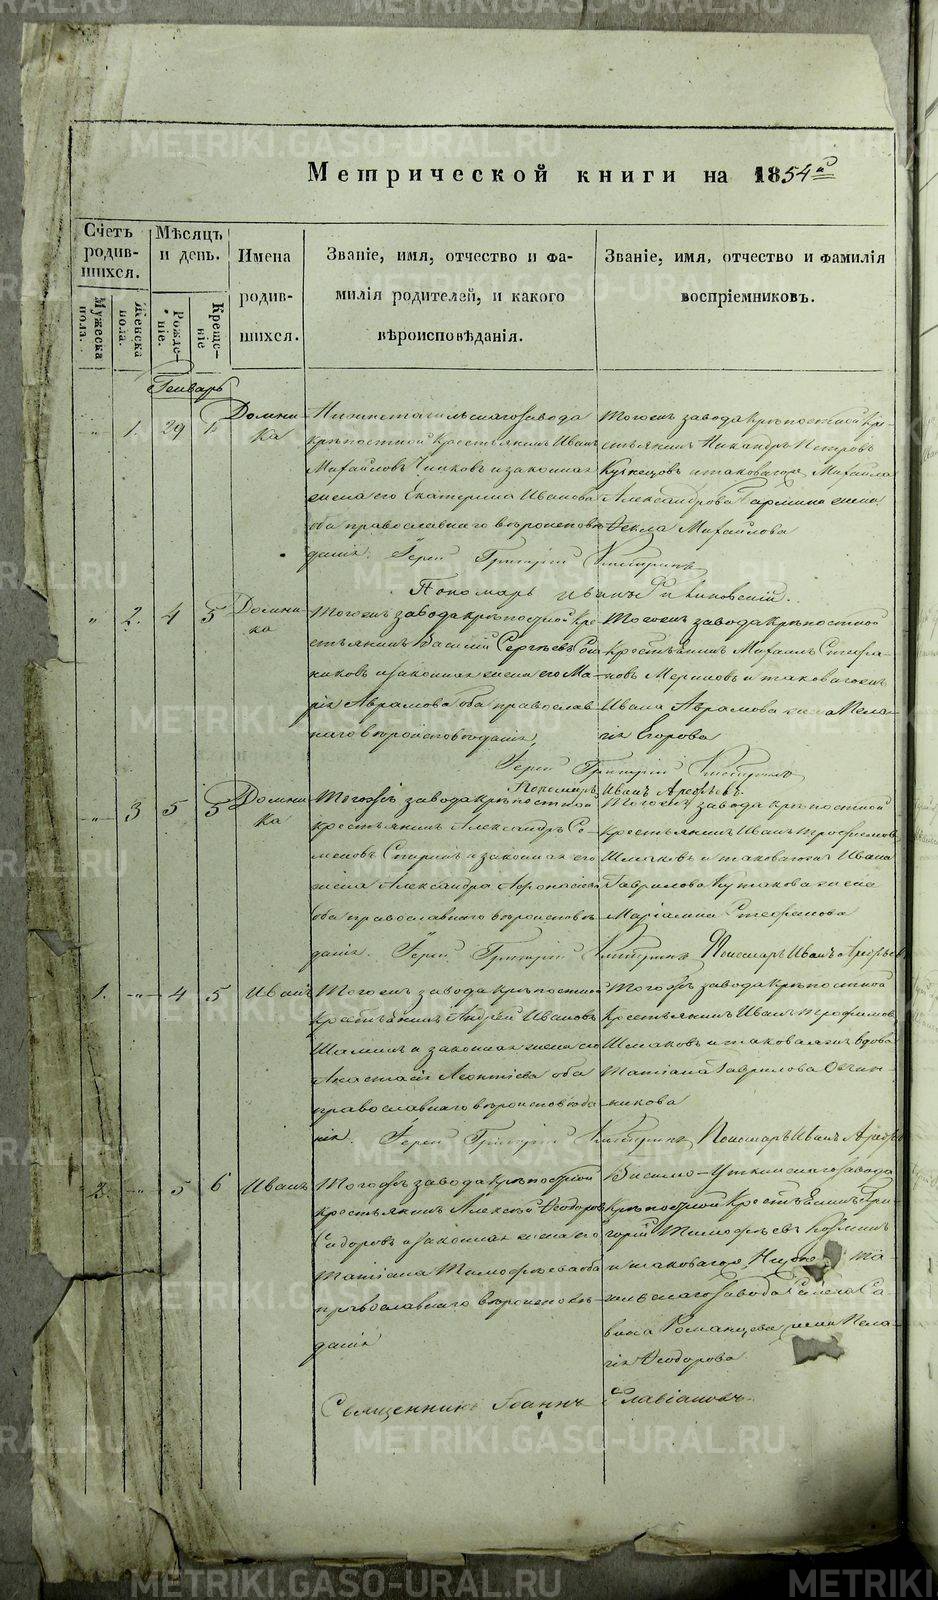 METRIKI.GASO-URAL.RU
Метрической книги на 1854й
Счетъ родившихся.
Мужеска пола.
Женска пола.
Мѣсяцъ и день.
Рожденіе.
Крещеніе
Имена родившихся.
Званіе, имя, отчество и фамилія родителей, и какого вѣроисповѣданія.
Званіе, имя, отчество и фамилія воспріемниковъ.
Генварь
" 1. 29 1. Домника
Нижнетагильскаго завода
крѣпостной крестьянинъ Иванъ
Михайловъ и законная
жена его Екатерина Иванова
оба православнаго вѣроисповѣ
данія.
Тогожъ завода крѣпостной кре-
стьянинъ Никандръ Петровъ
Кузнецовъ и таковагожъ Михаила
Александрова жена
Ѳекла Михайлова
Іерей Григорій
Пономарь Иванъ
" 2. 4 5 Домника
Тогожъ завода крѣпостной кре
стьянинъ Василій Сергѣевъ
никовъ и законная жена его Ма-
рія Аврамова оба православ-
наго вѣроисповѣданія.
Тогожъ завода крѣпостной
крестьянинъ Михаилъ Стефа-
новъ и таковагожъ
Ивана Аврамова жена Пела-
гія Егорова
Іерей Григорій
Пономарь Иванъ Арефьевъ.
" 3 5 5 Домника
Тогожъ завода крѣпостной
крестьянинъ Александръ Се-
меновъ и законная его
жена Александра Афонасьева
оба православнаго вѣроисповѣ
данія.
Тогожъ завода крѣпостной
крестьянинъ Иванъ Трофимовъ
Шмаковъ и таковагожъ Ивана
Гаврилова жена
Маріамна Стефанова
Іерей Григорій Пономарь Иванъ Арефьевъ
1. " 4 5 Иванъ
Тогожъ завода крѣпостной
крестьянинъ Андрей Ивановъ
Шаминъ и законная жена его
Анастасія Леонтіева оба
православнаго вѣроисповѣда
нія.
Тогожъ завода крѣпостной
крестьянинъ Иванъ Трофимовъ
Шмаковъ и таковаяжъ вдова
Татіана Гаврилова Овчин-
никова
Іерей Григорій Пономарь Иванъ Арефьев
2. " 5 6 Иванъ
Тогожъ завода крѣпостной
крестьянинъ Алексѣй Ѳеодоровъ
Сидоровъ и законная жена его
Татіана Тимофѣева оба
православнаго вѣроисповѣ-
данія
Висимо-Уткинскаго завода
крѣпостной крестьянинъ Гри-
горій Тимофѣевъ
и таковагожъ Нижне Та-
гильскаго завода Са-
вина Романцева жена Пела-
гія Ѳеодорова
Священникъ Іоаннъ Славіановъ